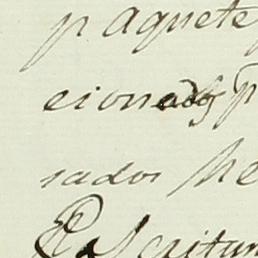 paquete
cionados p
sados he
Escritur